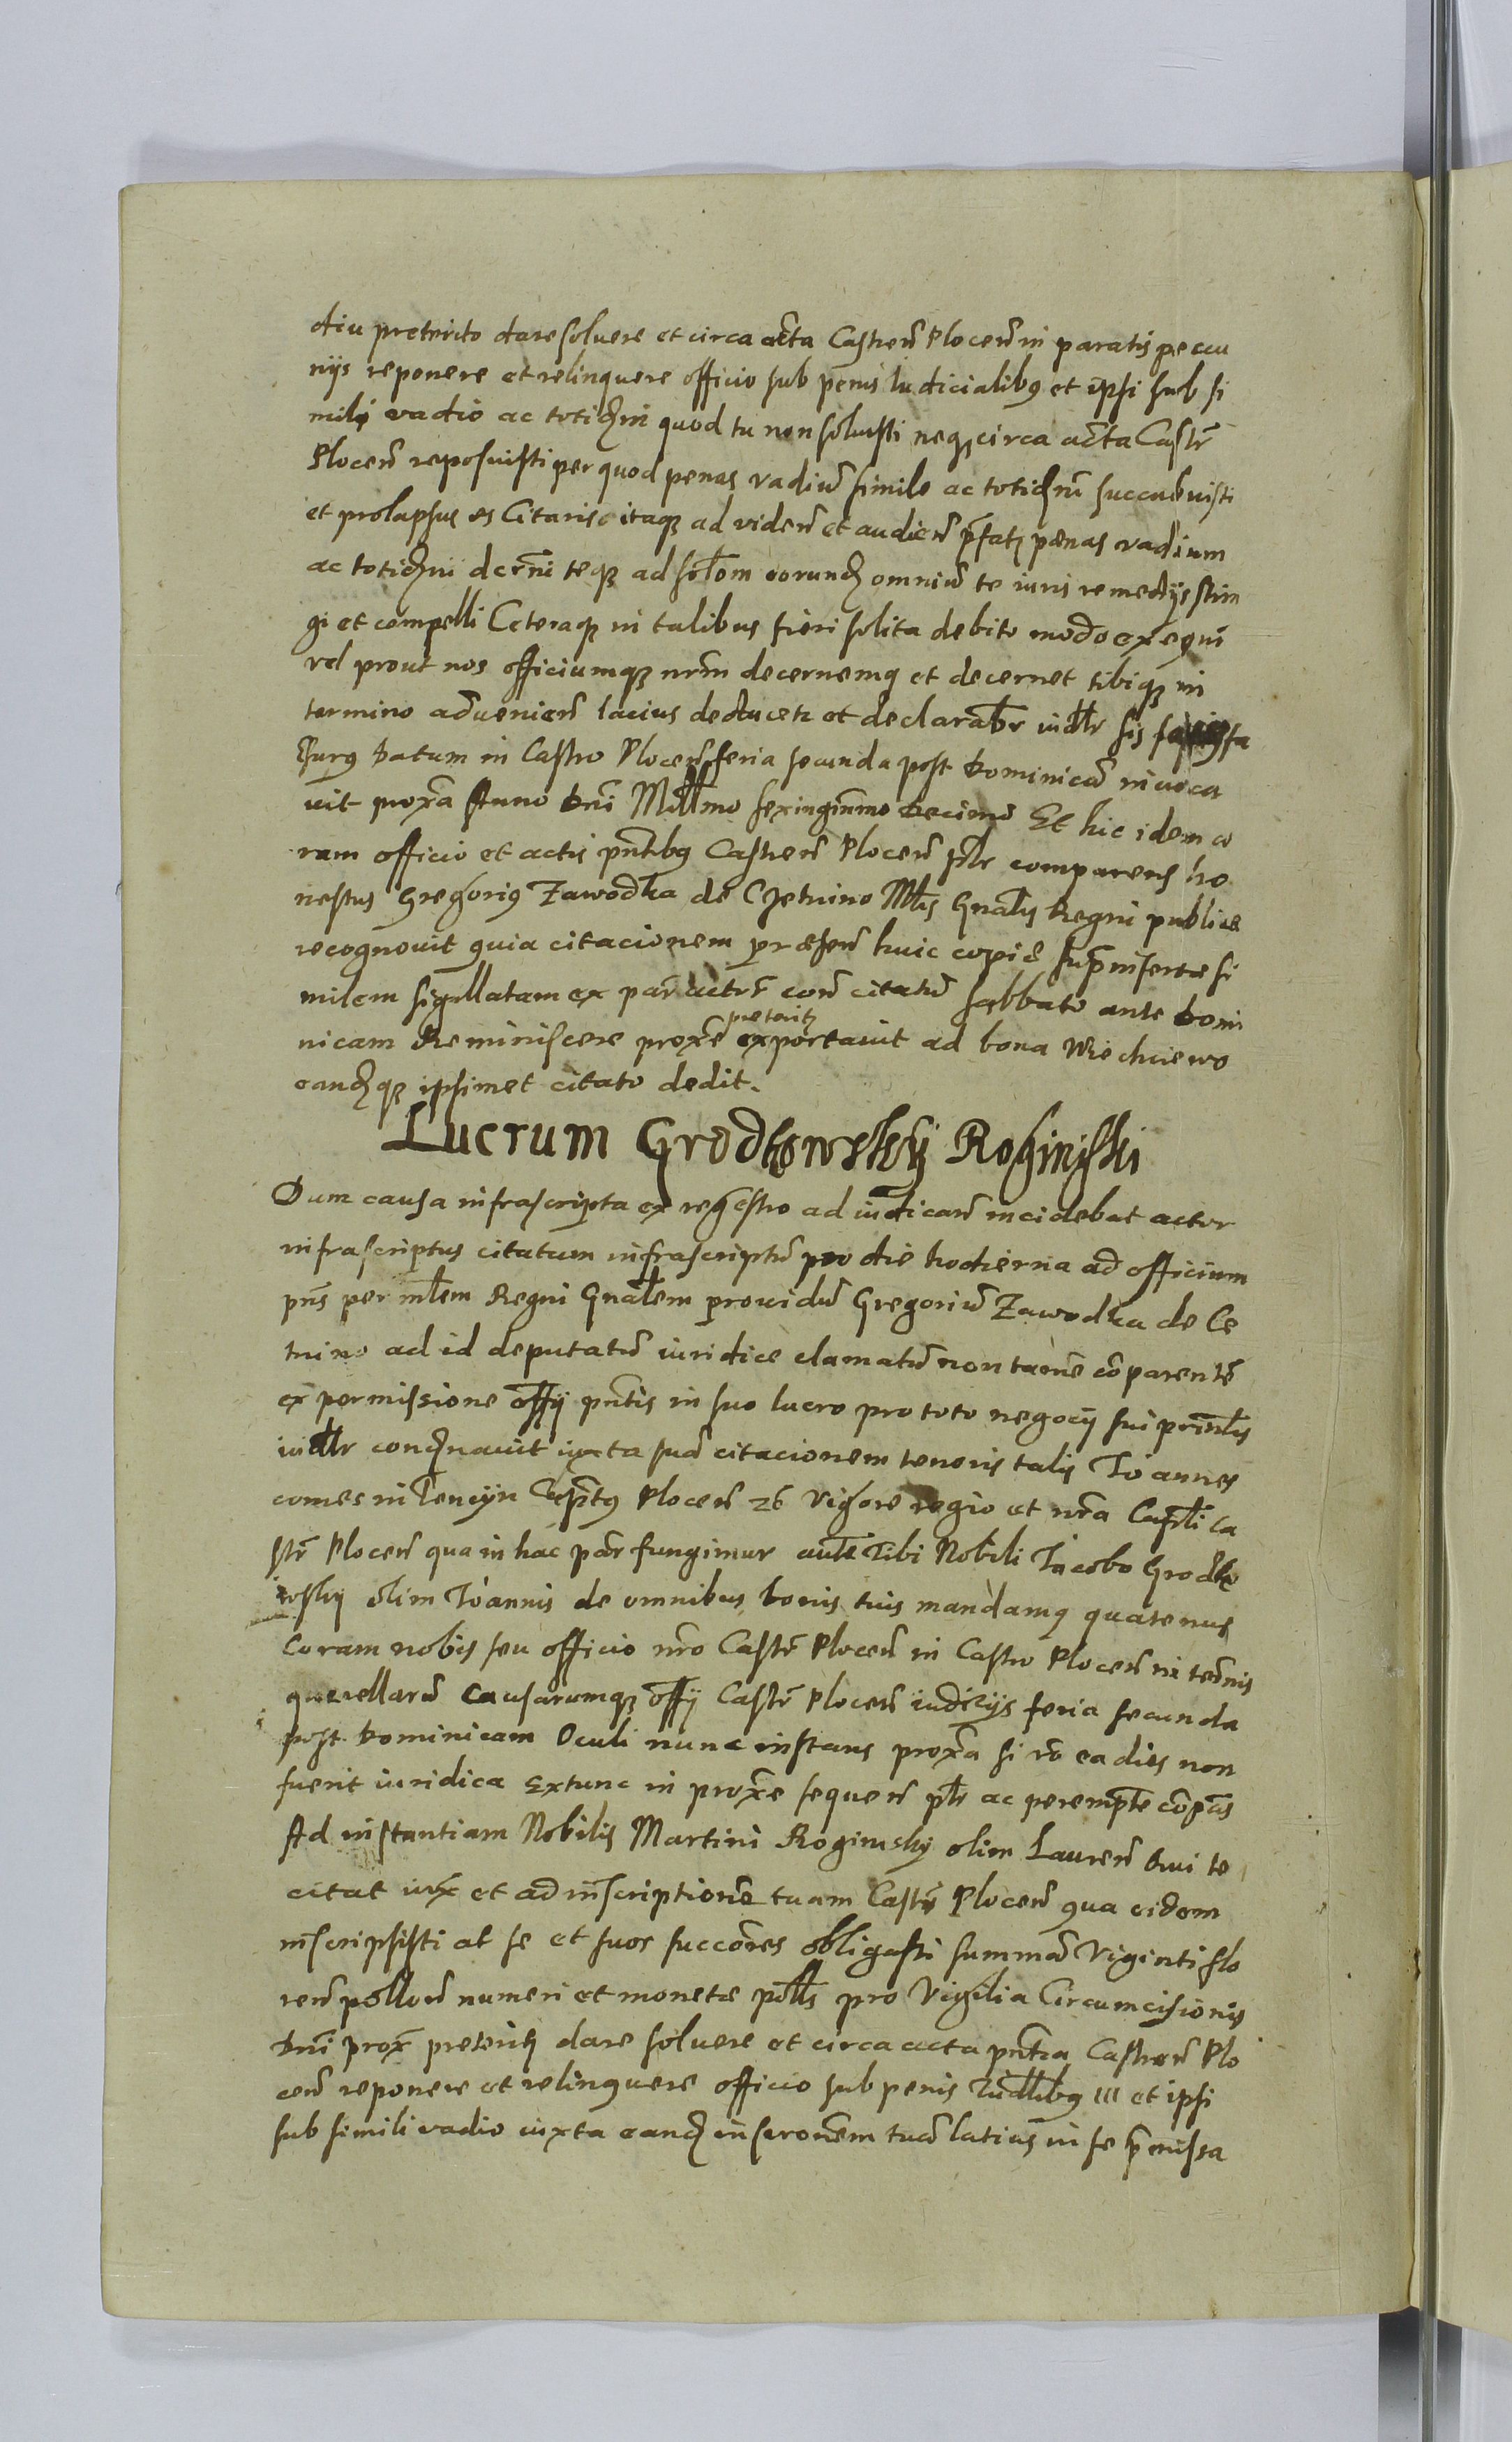 diu preterito dare soluere et circa acta Castreñ Ploceñ in paratis peccu
nijs reponere et relinquere officio sub penis Iudicialibꝰ et ipsi sub si
mili vadio ac totidm̄ quod tu non soluisti neqꝫ circa acta Castr̄
Ploceñ reposuisti per quod penas vadiū simile ac totidm̄ succubuisti
et prolapsus es Citaris itaqꝫ ad videñ et audieñ p̄fatꝫ pænas vadium
ac totidm̄ decr̄ni teqꝫ ad sol̄om eorundꝫ omniū te iuris remedijs strin
gi et compelli Ceteraqꝫ in talibus fieri solita debito modo exequi
vel prout nos officiumqꝫ nr̄m decernemꝰ et decernet tibiqꝫ in
termino adueniēñ lacius deducetr et declarabr̄ iudłr sis
surꝰ Datum in Castro Ploceñ feria secunda post Dominicā inuoca
uit prox̄a Anno Dni Mill̄mo sexingimmo Decimo Et hic idem co
ram officio et actis pn̄tibꝰ Castreñ Ploceñ pl̄r comparens ho
nestus Gregoriꝰ Zawodka de Cjetnino Mtis Gnal̄is Regni publice
recognouit quia citacionem præseñ huic copie suprinsertæ si
milem sigillatam ex par̄ actor̄ con̄ citatū sabbato ante Domi
nicam Reminiscere proxe preteritꝫ exportauit ad bona Miechciewo
eandꝫqꝫ ipsimet citato dedit.
Lucrum Grodkowskÿ Roginski
Dum causa infrascripta ex regestro ad iudicañ incidebat actor
infrascriptus citatum infrascriptū pro die hodierna ad officium
pn̄s per mt̄lem Regni Gnal̄em prouidū Gregoriū Zawodka de Ce
tnino ad id deputatū iuridice clamatū non tamē cōparentē
ex permissione offij pn̄tis in suo lucro pro toto negocij sui prīnlis
iudłr condꝫnauit iuxta suā citacionem tenoris talis Ioannes
comes in Tencÿn Capnt̄ꝰ Ploceñ 26 Vigore regio et nr̄a Capnłi ca
str̄ Ploceñ qua in hac par̄ fungimur aute Tibi Nobili Iacobo Grodko
wskÿ olim Ioannis de omnibus bonis tuis mandamꝰ quatenus
Coram nobis seu officio nr̄o Castr̄ Ploceñ in Castro Ploceñ in ter̄nis
querellarū causarumqꝫ offij Castr̄ Ploceñ iudicijs feria secunda
post Dominicam Oculi nunc instans proxa si vo ea dies non
fuerit iuridica Extunc in proxe sequeñ plr̄ ac perempte cōpās
Ad instantiam Nobilis Martini Roginskÿ olim Laureñ Qui te
citat iux et ad inscriptionē tuam Castr̄ Ploceñ qua eidem
inscripsisti at se et suos succōres obligasti summā Viginti flo
reñ pollōn numeri et monetæ pollis pro Vigilia Circumcisionis
Dni prox preteritꝫ dare soluere et circa acta pn̄tia Castreñ Plo
ceñ reponere et relinquere officio sub penis Iudłibꝰ III et ipsi
sub simili vadio iuxta eandꝫ inscronem tuā latius in se p̄missa